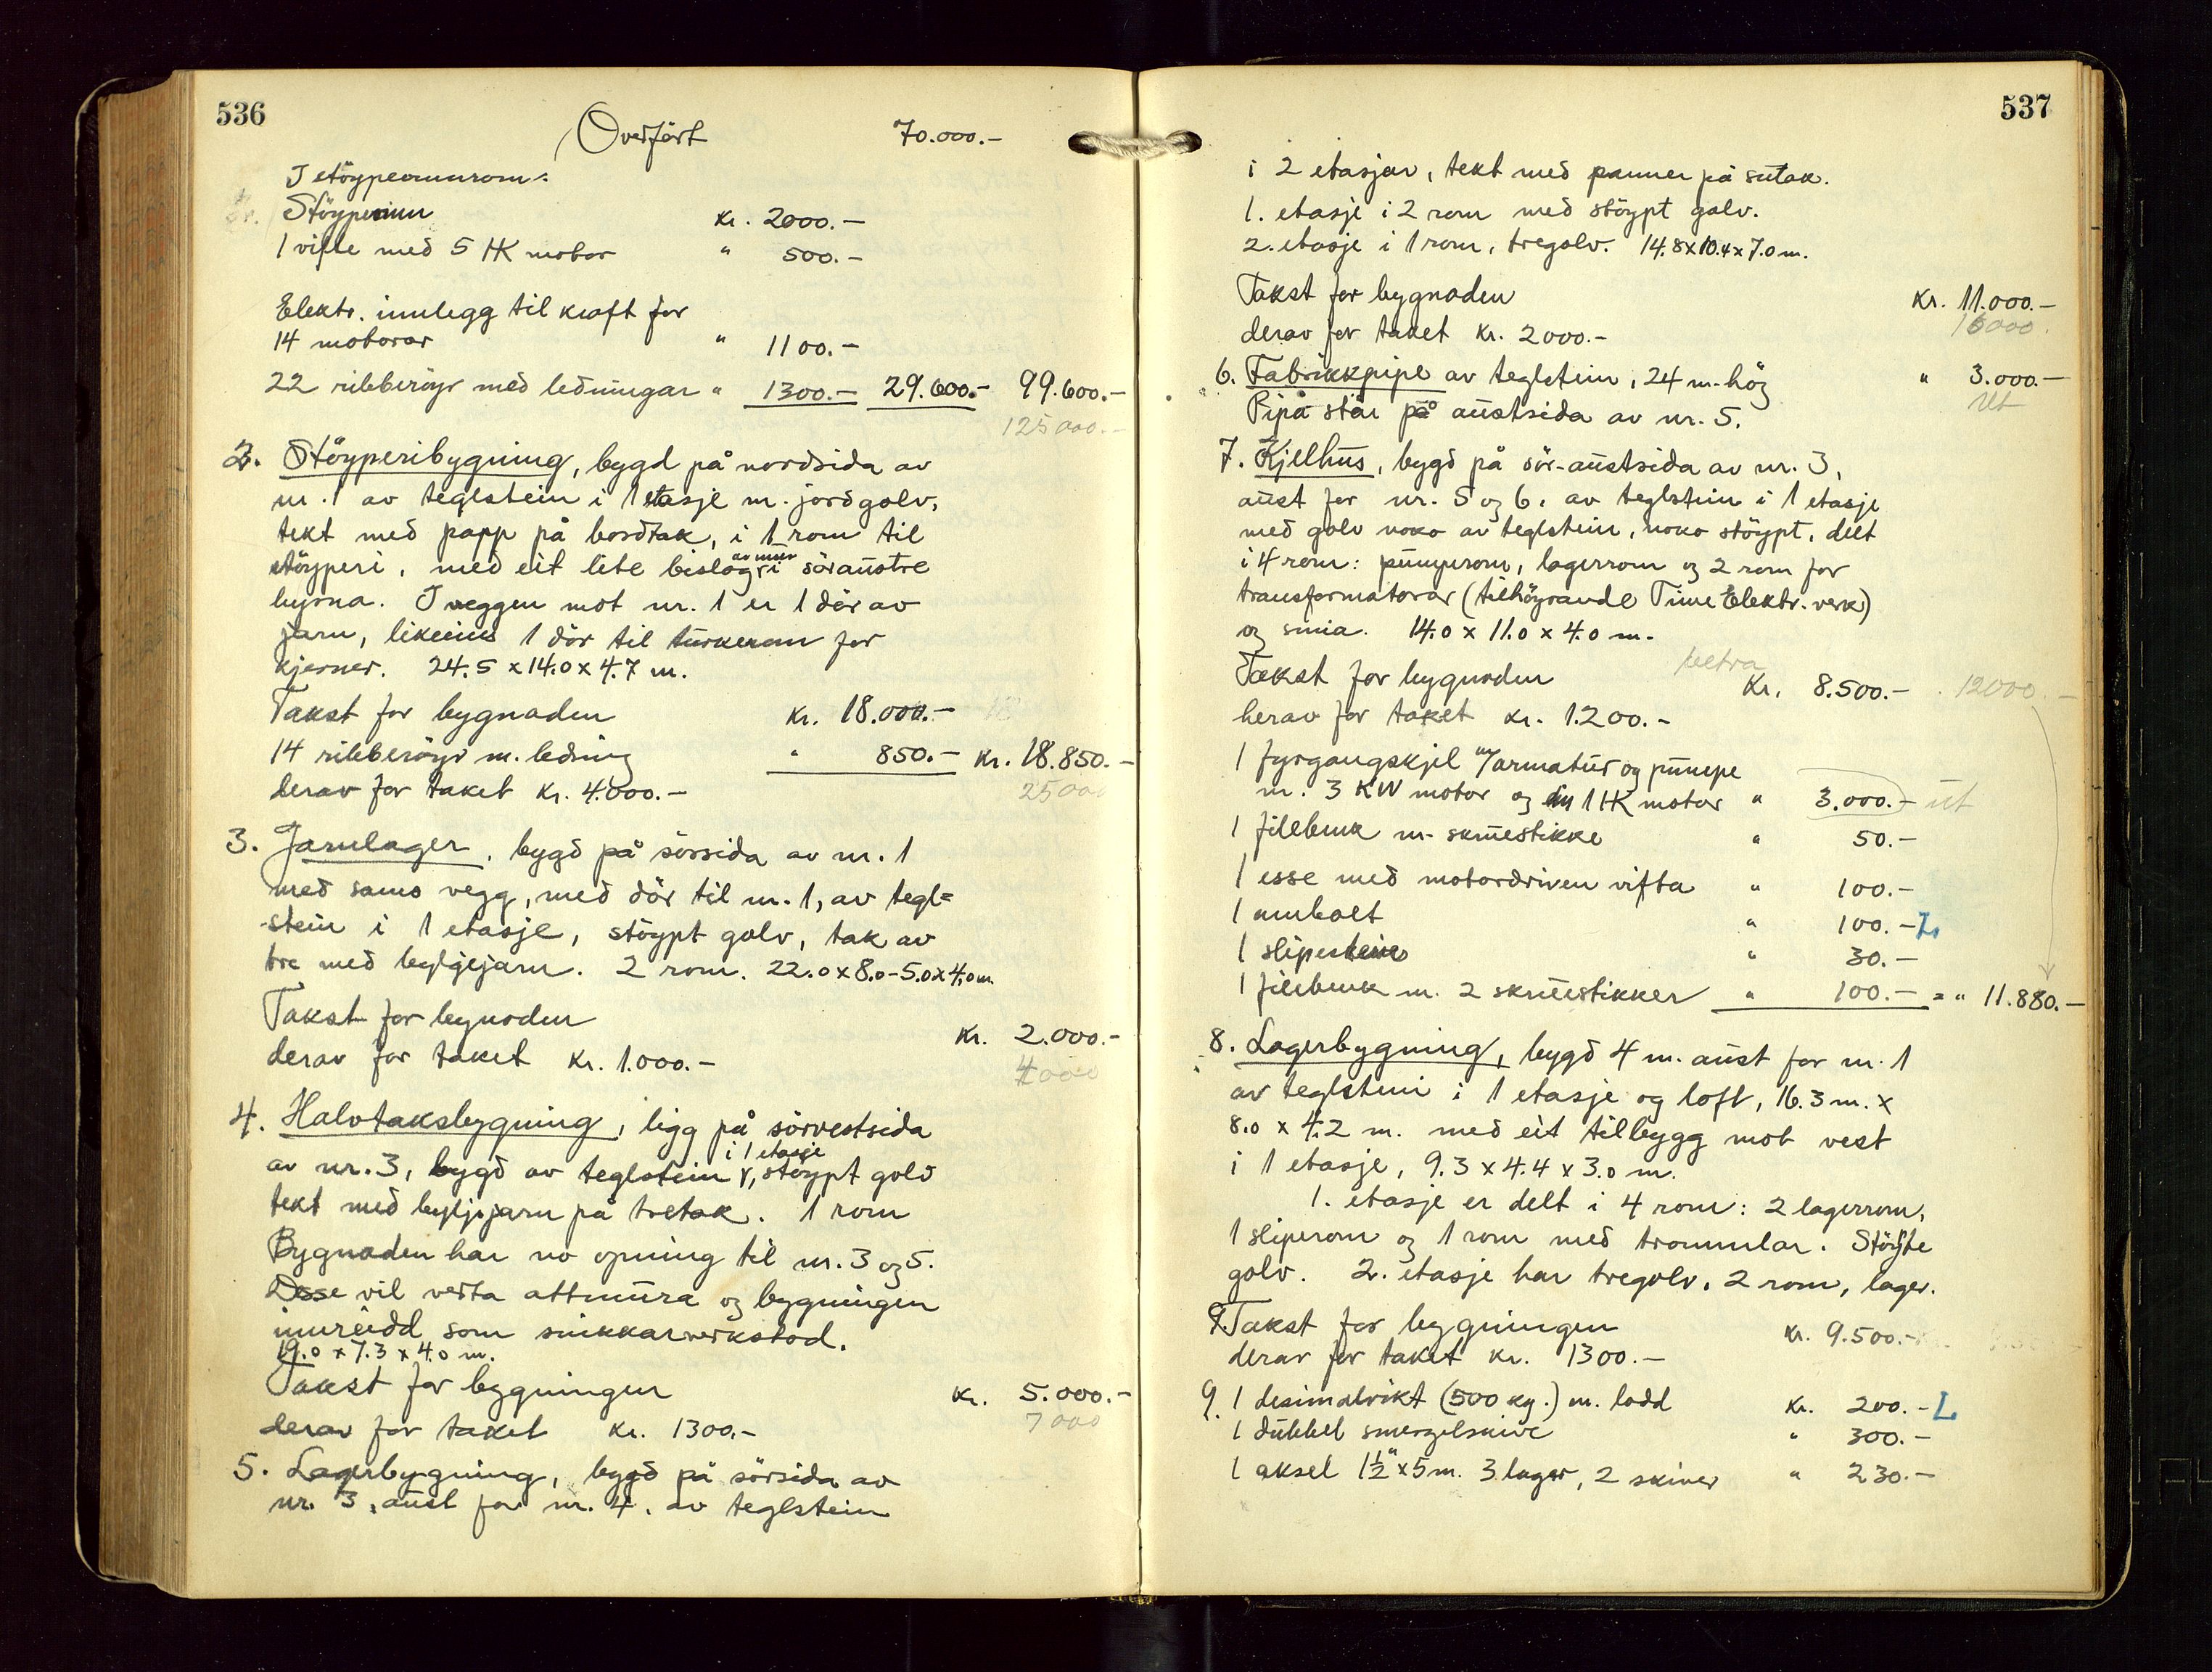 536
Overfört 70.000.-
I støypeomnrom:
Støypeomn kr. 2000.-
1 vifte med 5 HK motor " 500.-
Elektr. innlegg til kraft for
14 motorar " 1100.-
22 ribberöyr med ledningar " 1300.- 29.600.- 99.600.-
125000.-
2. Støyperibygning, bygd på nordsida av
nr. 1 av teglstein i 1 etasje m. jordgolv,
tekt med papp på bordtak, i 1 rom til
støyperi, med eit lite bislag av mur i søraustre
hyrna. I veggen mot nr. 1 er 1 dör av
jarn, likeeins 1 dör til turkerom for
kjerner. 24.5 x 14.0 x 4.7 m.
Takst for bygnaden kr. 18.000.- 18
14 ribberöyr m. ledning " 850.- kr. 18.850.-
derav for taket kr. 4.000.- 25000
3. Jarnlager, bygd på sörsida av nr. 1
med samo vegg, med dör til nr. 1, av tegl=
stein i 1 etasje, støypt golv, tak av
tre med bylgjejarn. 2 rom. 22.0 x 8.0-5.0 x 4.0 m.
Takst for bygnaden kr. 2.000.-
derav for taket kr. 1.000.- 4000
4. Halvtaksbygning, ligg på sörvestsida
av nr. 3, bygd av teglstein i 1 etasje, støypt golv
tekt med bylgjejarn på tretak. 1 rom
Bygnaden har no opning til nr. 3 og 5.
Desse vil verta attmura og bygningen
innreidd som snikkarverkstad.
19.0 x 7.3 x 4.0 m.
Takst for bygningen kr. 5.000.-
derav for taket kr. 1300.- 7000
5. Lagerbygning, bygd på sörsida av
nr. 3, aust for nr. 4, av teglstein
537
i 2 etasjar, tekt med panner på sutak.
1. etasje i 2 rom med støypt golv.
2. etasje i 1 rom, tregolv. 14.8 x 10.4 x 7.0 m.
Takst for bygnaden kr. 11.000.-
derav for taket kr. 2000.- 16000.
6. Fabrikkpipe av teglstein, 24 m. hög " 3.000.-
Pipå står på austsida av nr. 5. ut
7. Kjelhus, bygd på sör-austsida av nr. 3,
aust for nr. 5 og 6, av teglstein i 1 etasje
med golv noko av teglstein, noko støypt, delt
i 4 rom: pumperom, lagerrom og 2 rom for
transformatorar (tilhöyrande Time Elektr. verk)
og smia. 14.0 x 11.0 x 4.0 m.
Takst for bygnaden betra kr. 8.500.- 12000.-
herav for taket kr. 1.200.-
1 fyrgangskjel m/armatur og pumpe
m. 3 KW motor og 1 HK motor " 3.000.- ut
1 filebenk m. skruestikke " 50.-
1 esse med motordriven vifta " 100.-
1 ambolt " 100.- L
1 slipestein " 30.-
1 filebenk m. 2 skruestikker " 100.- = " 11.880.-
8. Lagerbygning, bygd 4 m. aust for nr. 1
av teglstein i 1 etasje og loft, 16.3 m. x
8.0 x 4.2 m. med eit tilbygg mot vest
i 1 etasje, 9.3 x 4.4 x 3.0 m.
1. etasje er delt i 4 rom: 2 lagerrom,
1 sliperom og 1 rom med tromlar. Støypte
golv. 2. etasje har tregolv, 2 rom, lager.
9. Takst for bygningen kr. 9.500.-
derav for taket kr. 1300.-
9. 1 desimalvikt (500 kg.) m. lodd kr. 200.- L
1 dubbel smergelskive " 300.-
1 aksel 1½" x 5 m. 3 lager, 2 skiver " 230.-